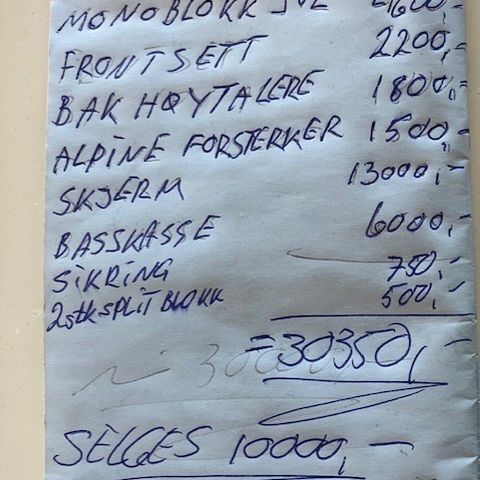 MONOBLOKK 4600,-
FRONTSETT 2200,-
BAK HØYTALERE 1800,-
ALPINE FORSTERKER 1500,-
SKJERM 13000,-
BASSKASSE 6000,-
SIKRING 750,-
2stk SPLITBLOKK 500,-
=30350,-
SELGES 10000,-